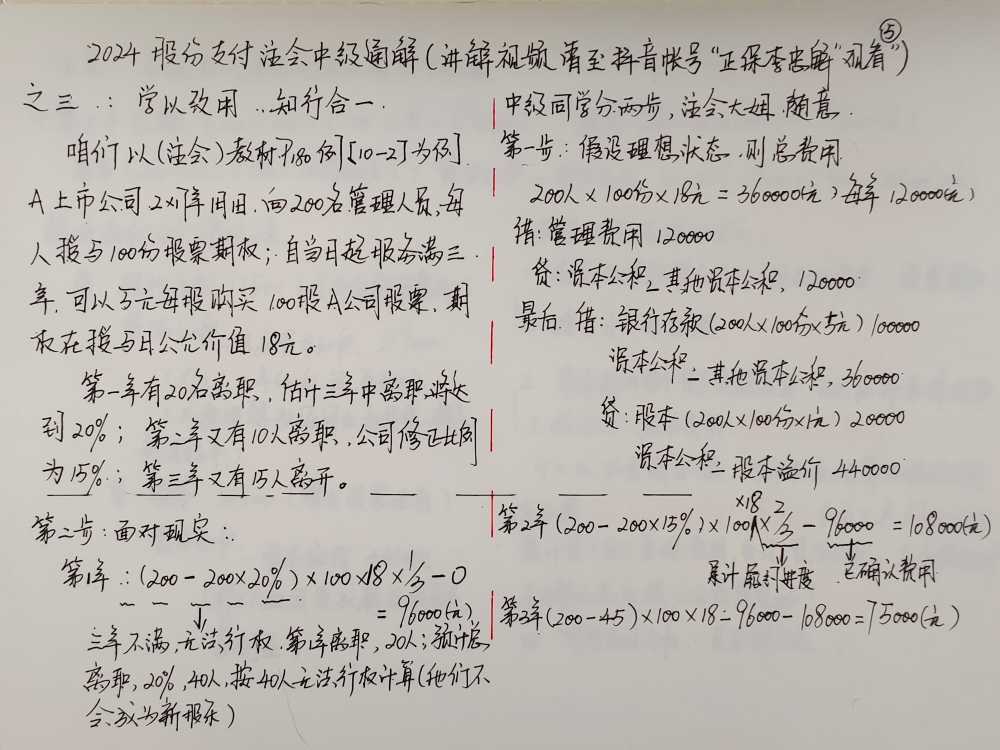 ⑤
2024股份支付注会中级通解(讲解视频请至抖音帐号“正保李忠解”观看”)
之三:学以致用..知行合一.
咱们以(注会)教材P180例[10-2]为例.
A上市公司2X1年1月1日,向200名管理人员,每
人授与100份股票期权;自当日起服务满三
年,可以5元每股购买100股A公司股票,期
权在授与日公允价值18元。
第一年有20名离职,估计三年中离职将达
到20%;第二年又有10人离职,公司修正比例
为15%;第三年又有15人离开。
中级同学分两步,注会大姐.随意.
第一步:假设理想状态.则总费用
200人×100份×18元=360000(元)每年120000(元)
借:管理费用 120000
贷:资本公积-其他资本公积,120000
最后.借:银行存款(200人×100份×5元)100000
资本公积-其他资本公积,360000
贷:股本(200人×100份×1元)20000
资本公积-股本溢价 440000
第二步:面对现实:
第1年:(200-200×20%)×100×18×1/3-0
=96000(元)
三年不满,无法行权.第1年离职,20人;预计总
离职,20%,40人,按40人无法行权计算(他们不
会成为新股东)
第2年(200-200×15%)×100×18×2/3-96000=108000(元)
累计能付进度 已确认费用
第3年(200-45)×100×18-96000-108000=75000(元)